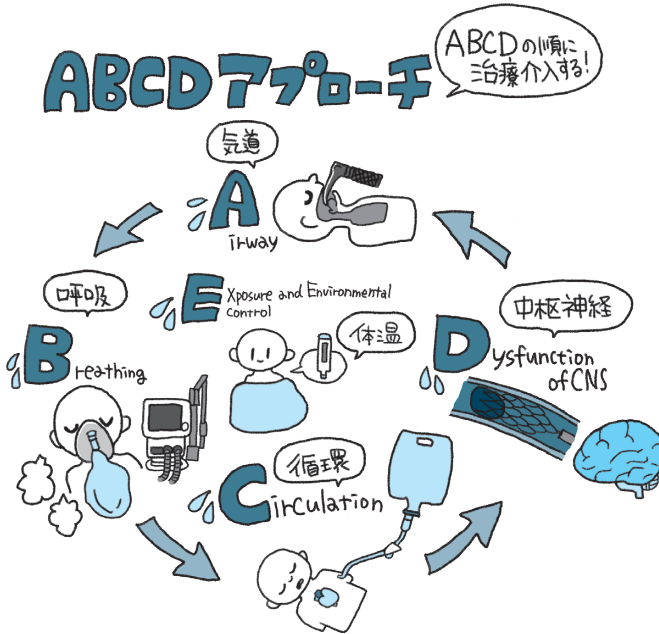 ABCDアプローチ
ABCDの順に
治療介入する!
気道
Airway
呼吸
Breathing
Exposure and Environmental
control
体温
中枢神経
Dysfunction
of CNS
循環
Circulation